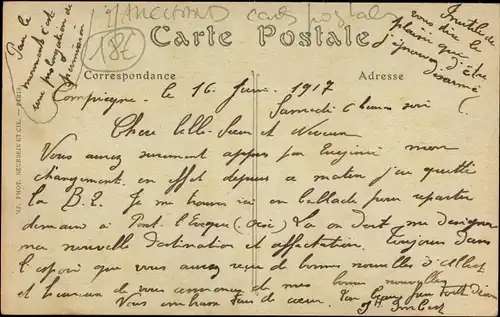 MARCHAND cartes postales
18€
Carte Postale
Correspondance
Adresse
Pour le
moment c'est
une prolongation de
permission
Inutile de
vous dire le
plaisir que
j'éprouve d'être
désarmé
Compiègne le 16 Juin 1917
Samedi 6 heures soir
Chère belle-Soeur et Neveu
Vous aurez surement appris par Eugénie mon
changement, en effet depuis ce matin j'ai quitté
la B.E. Je me trouve ici en ballade pour repartir
demain à Pont l'Eveque (Oise) La on doit me designer
ma nouvelle destination et affectation. Toujours dans
l'espoir que vous aurez reçu de bonnes nouvelles d'Albert
et heureux de vous annoncer de mes bonnes nouvelles
Vous embrasse tous de coeur. Ton beau frère
Imbert
NP. PHOT. NEURDEIN ET CIE. — PARIS